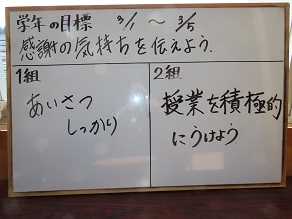 学年の目標 3/1 ～ 3/5
感謝の気持ちを伝えよう.
1組
あいさつ
しっかり
2組
授業を積極的
にうけよう